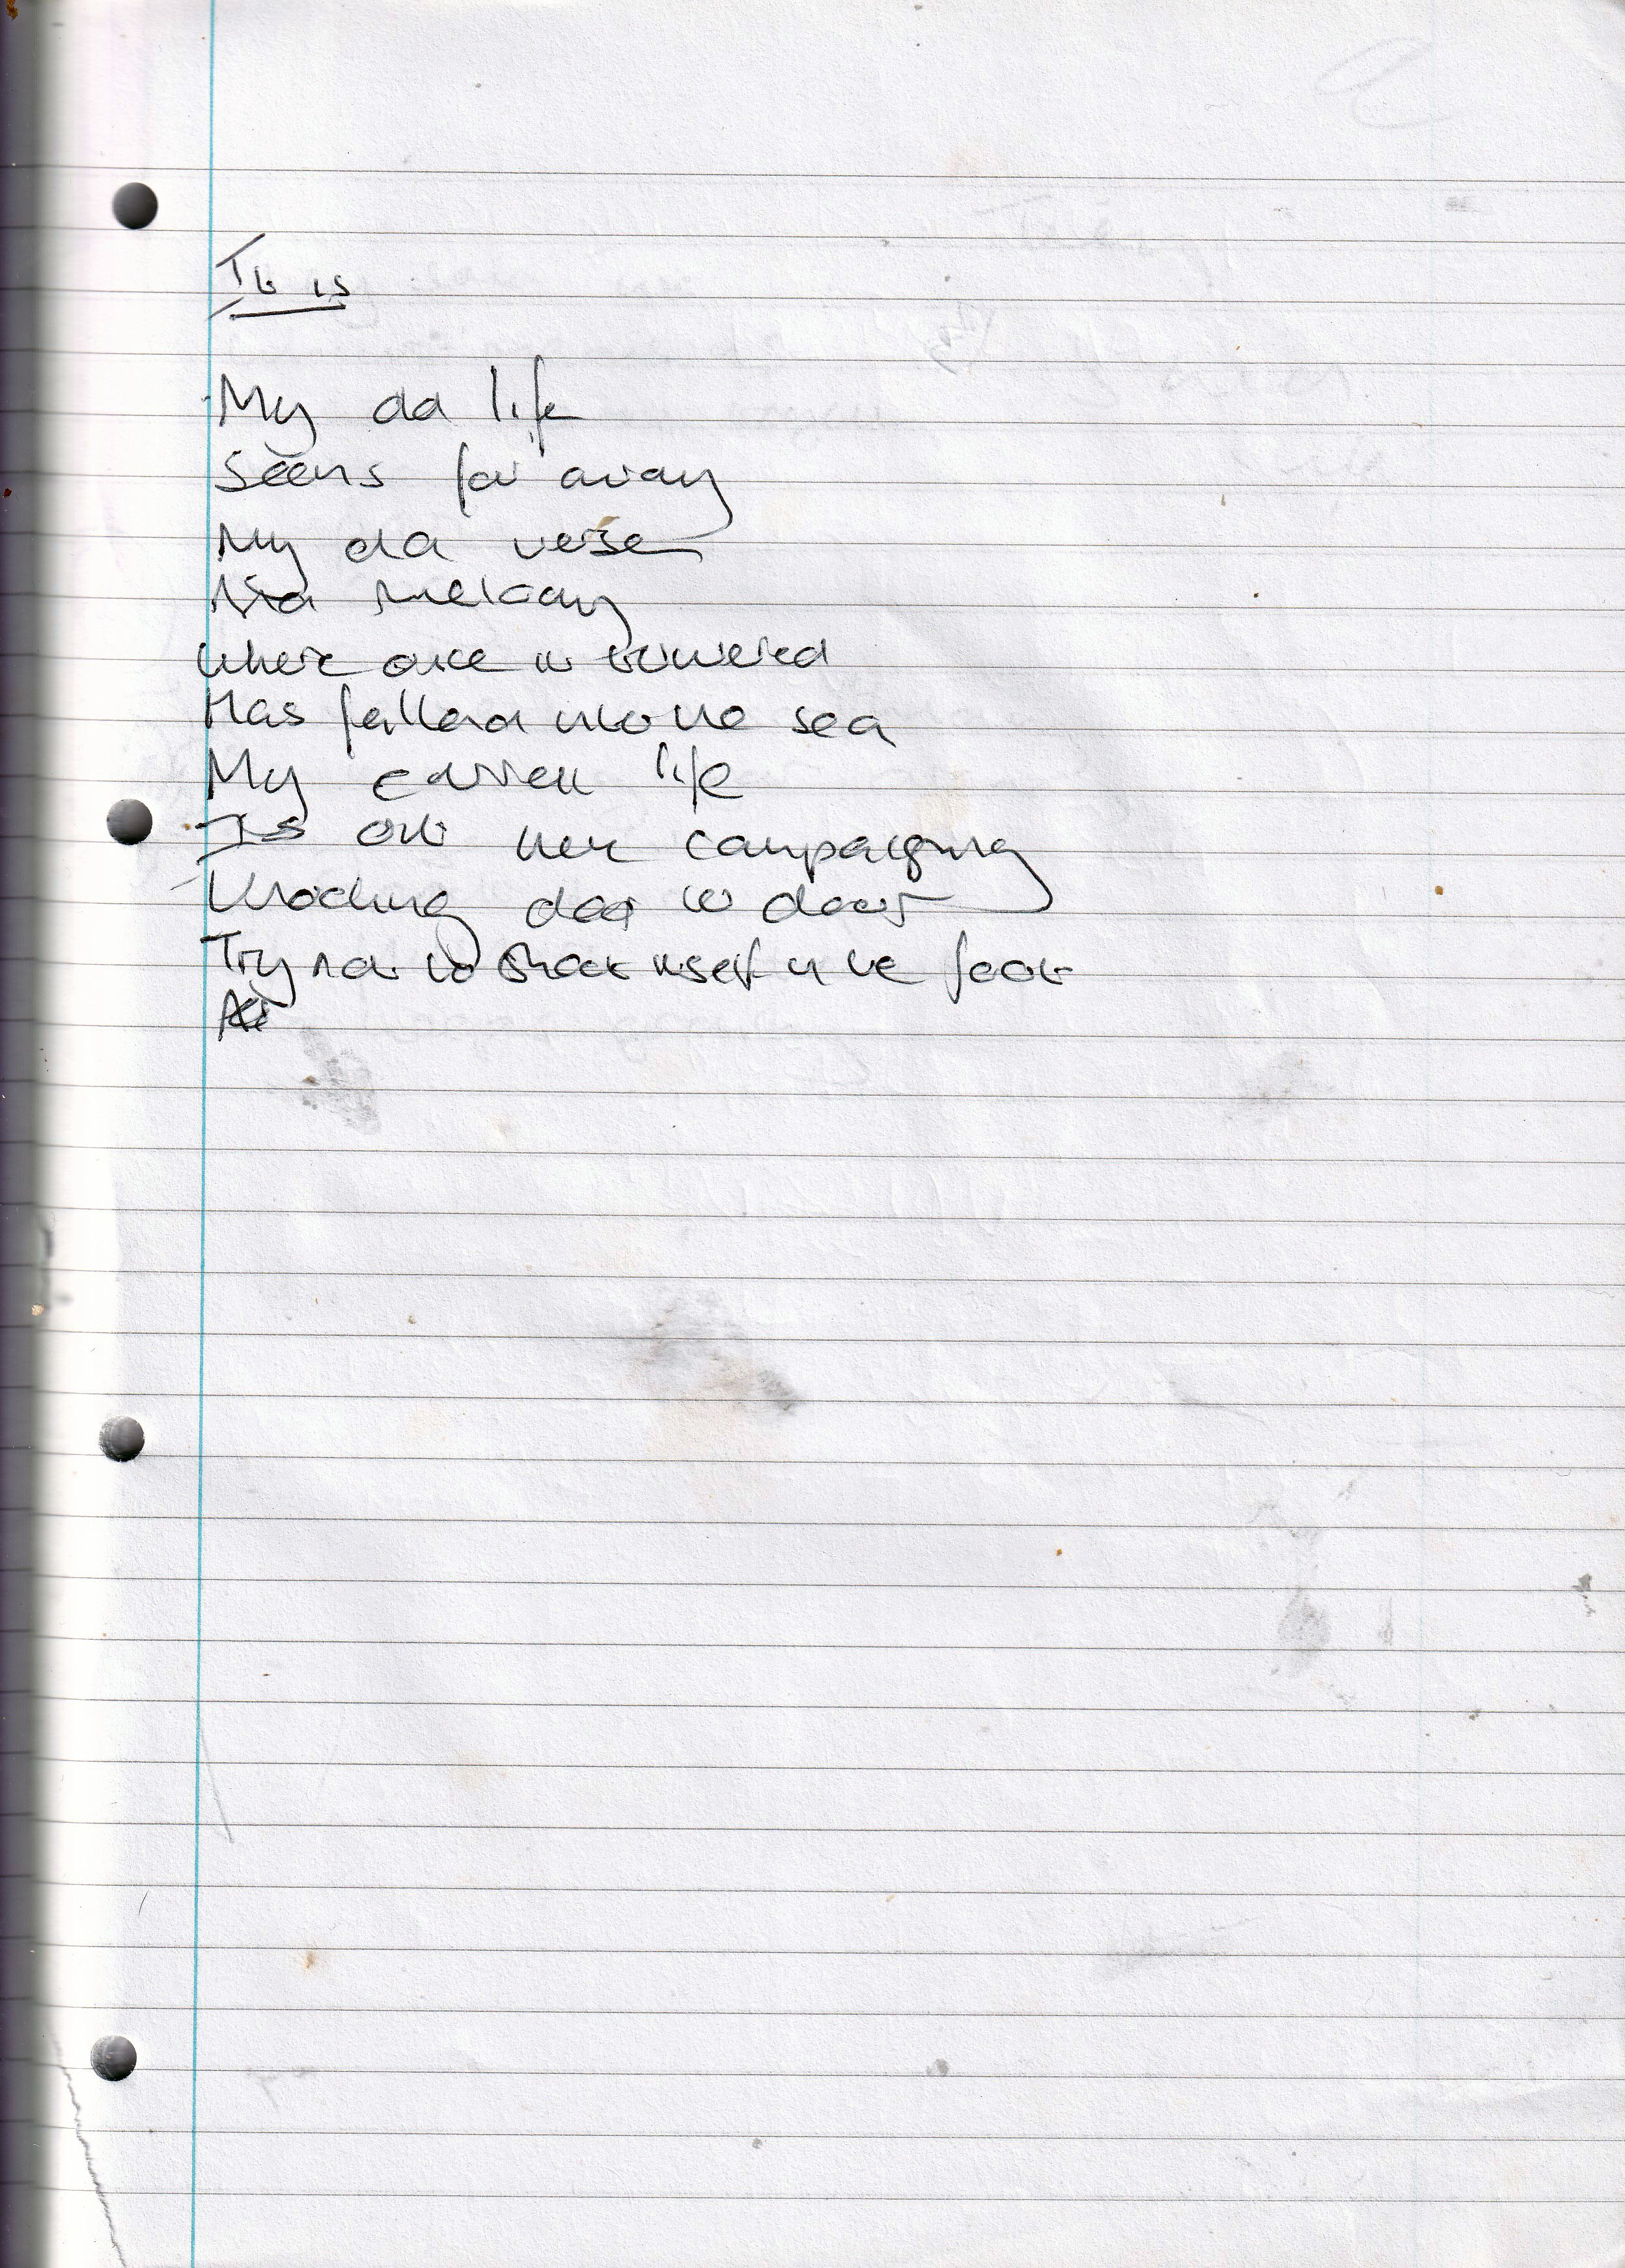 It is
My old life
Seems far away
My old verse
where once it towered
Has fallen into the sea
My current life
Is out here campaigning
Knocking door to door
Try not to shoot itself in the foot